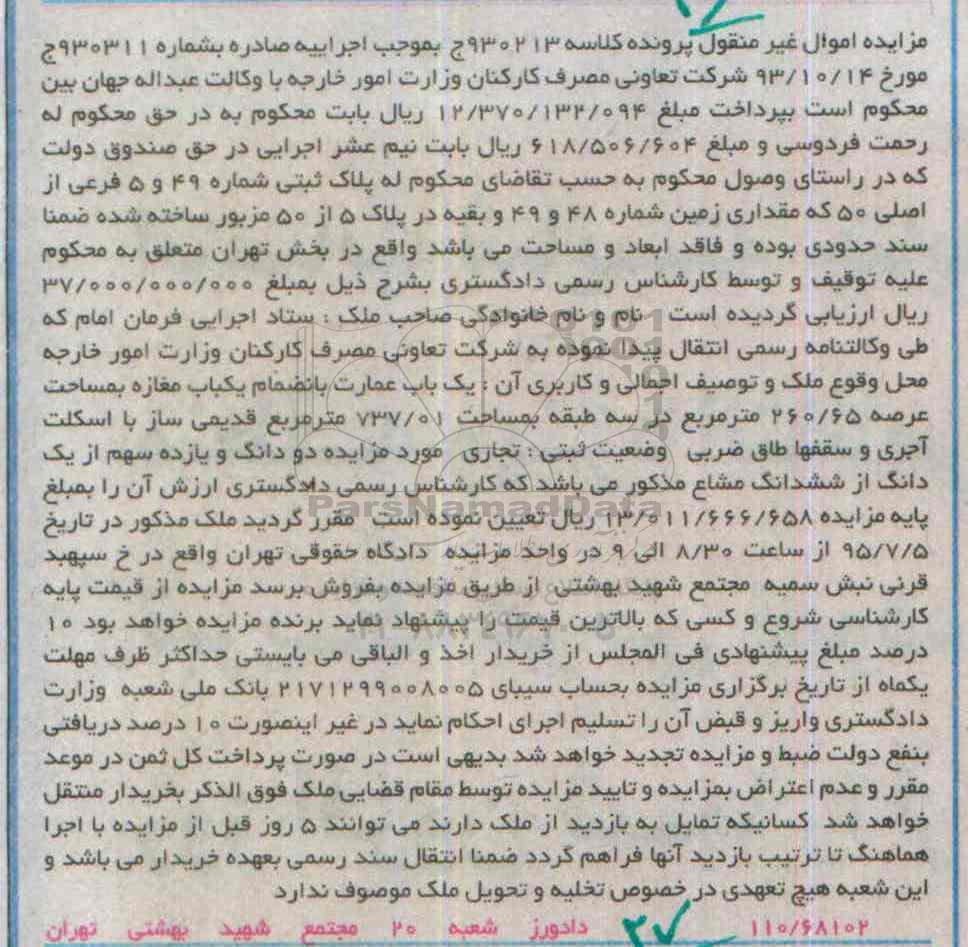 مزایده اموال غیر منقول پرونده کلاسه ۹۳۰۲۱۳ج بموجب اجراییه صادره بشماره ۹۳۰۳۱۱ج
مورخ ۹۳/۱۰/۱۴ شرکت تعاونی مصرف کارکنان وزارت امور خارجه با وکالت عبداله جهان بین
محکوم است بپرداخت مبلغ ۱۲/۳۷۰/۱۳۲/۰۹۴ ریال بابت محکوم به در حق محکوم له
رحمت فردوسی و مبلغ ۶۱۸/۵۰۶/۶۰۴ ریال بابت نیم عشر اجرایی در حق صندوق دولت
که در راستای وصول محکوم به حسب تقاضای محکوم له پلاک ثبتی شماره ۴۹ و ۵ فرعی از
اصلی ۵۰ که مقداری زمین شماره ۴۸ و ۴۹ و بقیه در پلاک ۵ از ۵۰ مزبور ساخته شده ضمنا
سند حدودی بوده و فاقد ابعاد و مساحت می باشد واقع در بخش تهران متعلق به محکوم
علیه توقیف و توسط کارشناس رسمی دادگستری بشرح ذیل بمبلغ ۳۷/۰۰۰/۰۰۰/۰۰۰
ریال ارزیابی گردیده است نام و نام خانوادگی صاحب ملک : ستاد اجرایی فرمان امام که
طی وکالتنامه رسمی انتقال پیدا نموده به شرکت تعاونی مصرف کارکنان وزارت امور خارجه
محل وقوع ملک و توصیف اجمالی و کاربری آن : یک باب عمارت بانضمام یکباب مغازه بمساحت
عرصه ۲۶۰/۶۵ مترمربع در سه طبقه بمساحت ۷۳۷/۰۱ مترمربع قدیمی ساز با اسکلت
آجری و سقفها طاق ضربی وضعیت ثبتی : تجاری مورد مزایده دو دانگ و یازده سهم از یک
دانگ از ششدانگ مشاع مذکور می باشد که کارشناس رسمی دادگستری ارزش آن را بمبلغ
ParsNamadData
پایه مزایده ۱۳/۰۱۱/۶۶۶/۶۵۸ ریال تعیین نموده است مقرر گردید ملک مذکور در تاریخ
۹۵/۷/۵ از ساعت ۸/۳۰ الی ۹ در واحد مزایده دادگاه حقوقی تهران واقع در خ سپهبد
قرنی نبش سمیه مجتمع شهید بهشتی از طریق مزایده بفروش برسد مزایده از قیمت پایه
کارشناسی شروع و کسی که بالاترین قیمت را پیشنهاد نماید برنده مزایده خواهد بود ۱۰
درصد مبلغ پیشنهادی فی المجلس از خریدار اخذ و الباقی می بایستی حداکثر ظرف مهلت
یکماه از تاریخ برگزاری مزایده بحساب سیبای ۲۱۷۱۲۹۹۰۰۸۰۰۵ بانک ملی شعبه وزارت
دادگستری واریز و قبض آن را تسلیم اجرای احکام نماید در غیر اینصورت ۱۰ درصد دریافتی
بنفع دولت ضبط و مزایده تجدید خواهد شد بدیهی است در صورت پرداخت کل ثمن در موعد
مقرر و عدم اعتراض بمزایده و تایید مزایده توسط مقام قضایی ملک فوق الذکر بخریدار منتقل
خواهد شد کسانیکه تمایل به بازدید از ملک دارند می توانند ۵ روز قبل از مزایده با اجرا
هماهنگ تا ترتیب بازدید آنها فراهم گردد ضمنا انتقال سند رسمی بعهده خریدار می باشد و
این شعبه هیچ تعهدی در خصوص تخلیه و تحویل ملک موصوف ندارد
۱۱۰/۶۸۱۰۲ دادورز شعبه ۲۰ مجتمع شهید بهشتی تهران